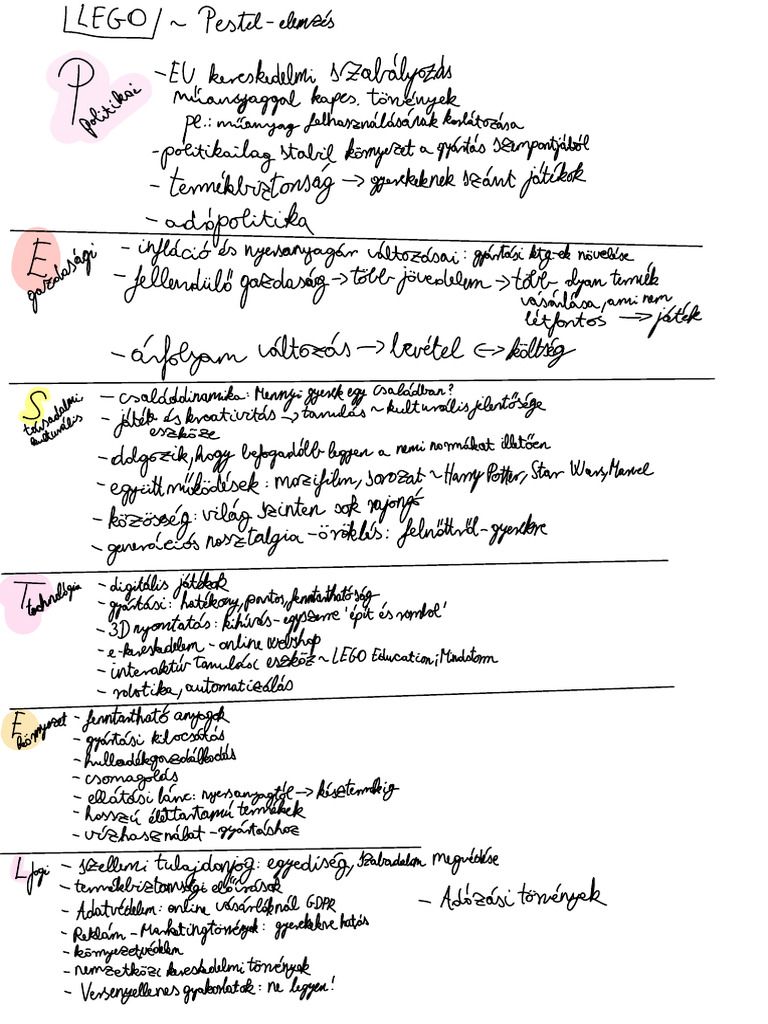 LEGO ~ Pestel-elemzés
Politikai
- EU kereskedelmi szabályozás
műanyaggal kapcs. törvények
pl.: műanyag felhasználásának korlátozása
- politikailag stabil környezet a gyártás szempontjából
- termékbiztonság → gyerekeknek szánt játékok
- adópolitika
Egazdasági
- infláció és nyersanyagár változásai: gyártási ktg-ek növelése
- fellendülő gazdaság → több jövedelem → több olyan termék
vásárlása, ami nem
létfontos → játék
- árfolyam változás → bevétel <-> költség
Stársadalmi
kulturális
- családdinamika: Mennyi gyerek egy családban?
- játék és kreativitás → tanulás ~ kulturális jelentősége
eszköze
- dolgozik, hogy befogadóbb legyen a nemi normákat illetően
- együttműködések: mozifilm, sorozat ~ Harry Potter, Star Wars, Marvel
- közösség: világ szinten sok rajongó
- generációs nosztalgia - öröklés: felnőttről - gyerekre
Technológia
- digitális játékok
- gyártási: hatékony, pontos, fenntarthatóság
- 3D nyomtatás: kihívás - egyszerre 'épít és rombol'
- e-kereskedelem - online webshop
- interaktív tanulási eszköz ~ LEGO Education; Mindstorm
- robotika, automatizálás
Környezet
- fenntartható anyagok
- gyártási kibocsátás
- hulladékgazdálkodás
- csomagolás
- ellátási lánc: nyersanyagtól → késztermékig
- hosszú élettartamú termékek
- vízhasználat - gyártáshoz
L jogi
- szellemi tulajdonjog: egyediség, szabadalom megvédése
- termékbiztonsági előírások
- Adatvédelem: online vásárlóknál GDPR
- Adózási törvények
- Reklám - Marketingtörvények: gyerekekre hatás
- környezetvédelem
- nemzetközi kereskedelmi törvények
- Versenyellenes gyakorlatok: ne legyen!